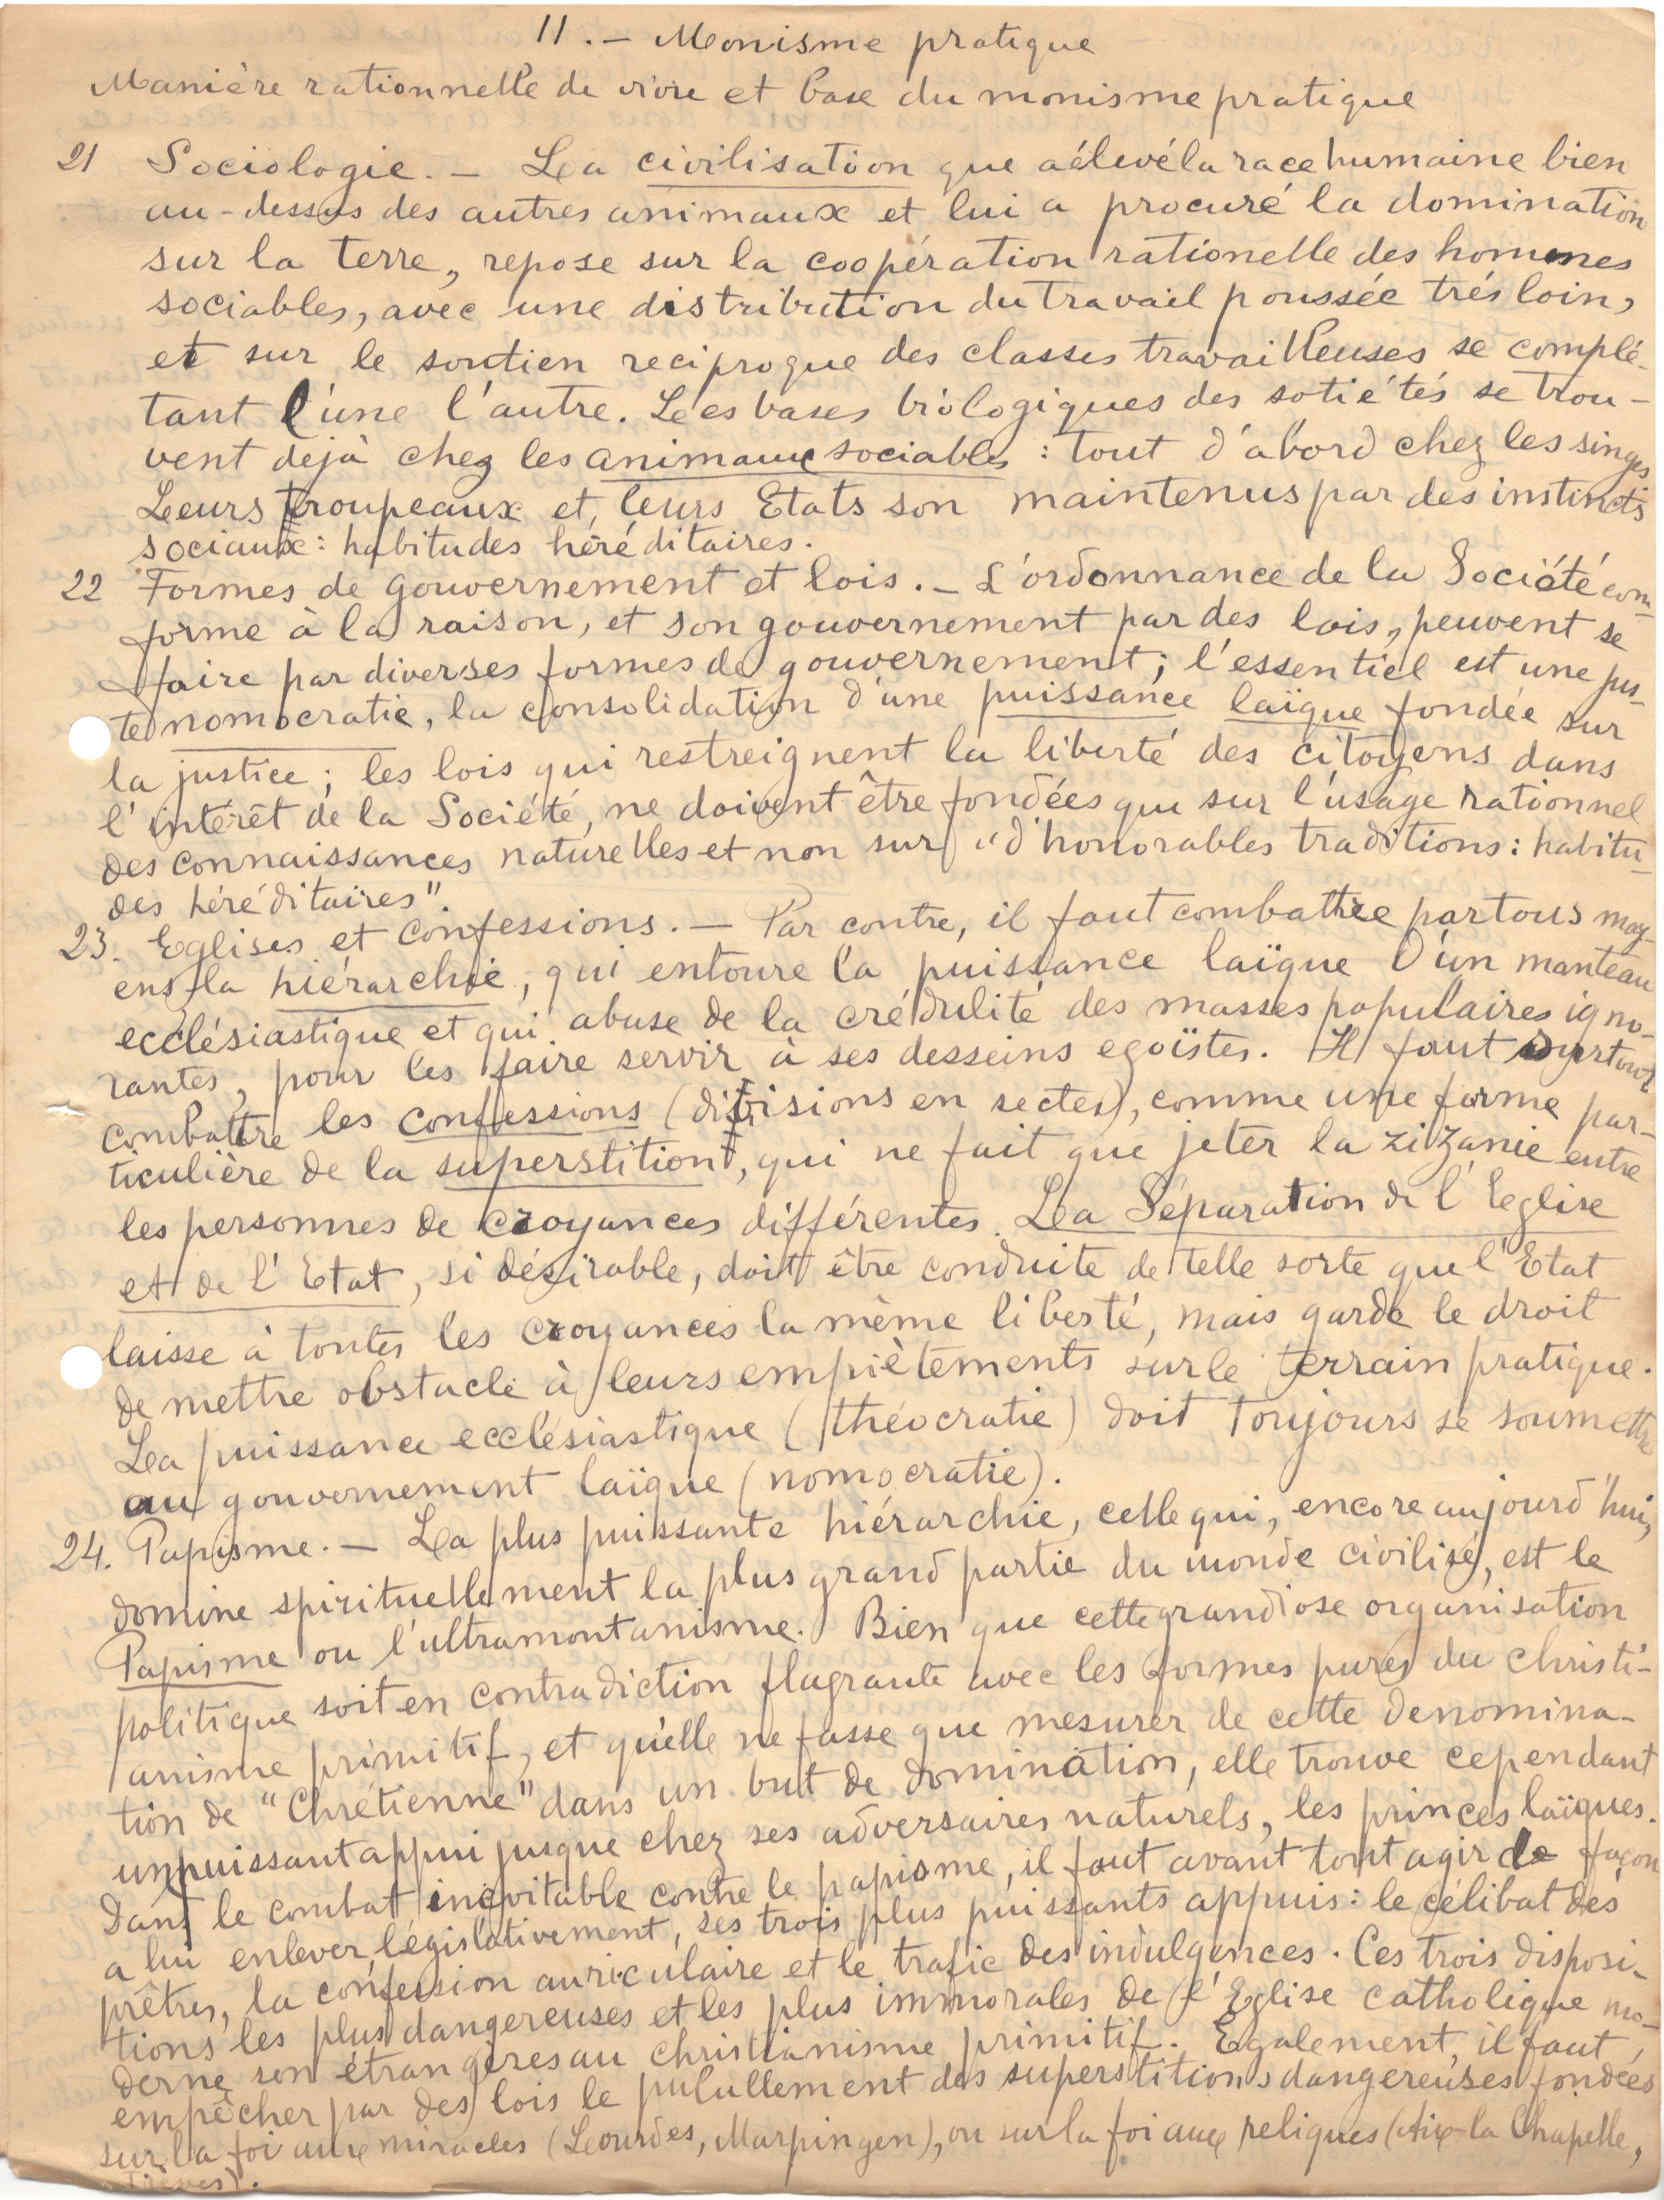 11. — Monisme pratique
Manière rationnelle de vivre et base du monisme pratique
21 Sociologie. — La civilisation que a élevé la race humaine bien
au-dessus des autres animaux et lui a procuré la domination
sur la terre, repose sur la coopération rationelle des hommes
sociables, avec une distribution du travail poussée trés loin,
et sur le soutien reciproque des classes travailleuses se complé-
tant l'une l'autre. Les bases biologiques des sotiétés se trou-
vent dejà chez les animaux sociables : tout d'abord chez les singes
Leurs troupeaux et leurs Etats son maintenus par des instincts
sociaux : habitudes héréditaires.
22 Formes de gouvernement et lois. — L'ordonnance de la Société con-
forme à la raison, et son gouvernement par des lois, peuvent se
faire par diverses formes de gouvernement ; l'essentiel est une jus-
te nomocratie, la consolidation d'une puissance laïque fondée sur
la justice ; les lois qui restreignent la liberté des citoyens dans
l'intérêt de la Société, ne doivent être fondées que sur l'usage rationnel
des connaissances naturelles et non sur "d'honorables traditions : habitu-
des héréditaires".
23. Eglises et confessions. — Par contre, il faut combattre par tous moy-
ens la hiérarchie, qui entoure la puissance laïque d'un manteau
ecclésiastique et qui abuse de la crédulité des masses populaires igno-
rantes, pour les faire servir à ses desseins egoïstes. Il faut surtout
combattre les confessions (divisions en sectes), comme une forme par-
ticulière de la superstition, qui ne fait que jeter la zizanie entre
les personnes de croyances différentes. La Séparation de l'Eglise
et de l'Etat, si désirable, doit être conduite de telle sorte que l'Etat
laisse à toutes les croyances la même liberté, mais garde le droit
de mettre obstacle à leurs empiètements sur le terrain pratique.
La puissance ecclésiastique (théocratie) doit toujours se soumettre
au gouvernement laïque (nomocratie).
24. Papisme. — La plus puissante hiérarchie, celle qui, encore aujourd'hui,
domine spirituellement la plus grand partie du monde civilisé, est le
Papisme ou l'ultramontanisme. Bien que cette grandiose organisation
politique soit en contradiction flagrante avec les formes pures du christi-
anisme primitif, et qu'elle ne fasse que mesurer de cette denomina-
tion de "Chrétienne" dans un but de domination, elle trouve cependant
un puissant appui jusque chez ses adversaires naturels, les princes laïques.
Dans le combat inévitable contre le papisme, il faut avant tout agir de façon
a lui enlever législativement, ses trois plus puissants appuis : le célibat des
prêtres, la confession auriculaire et le trafic des indulgences. Ces trois disposi-
tions les plus dangereuses et les plus immorales de l'Eglise catholique mo-
derne son étrangères au christianisme primitif. Egalement, il faut,
empêcher par des lois le pulullement des superstitions dangereuses fondées
sur la foi aux miracles (Lourdes, Marpingen), ou sur la foi aux reliques (Aix-la Chapelle,
Trèves).